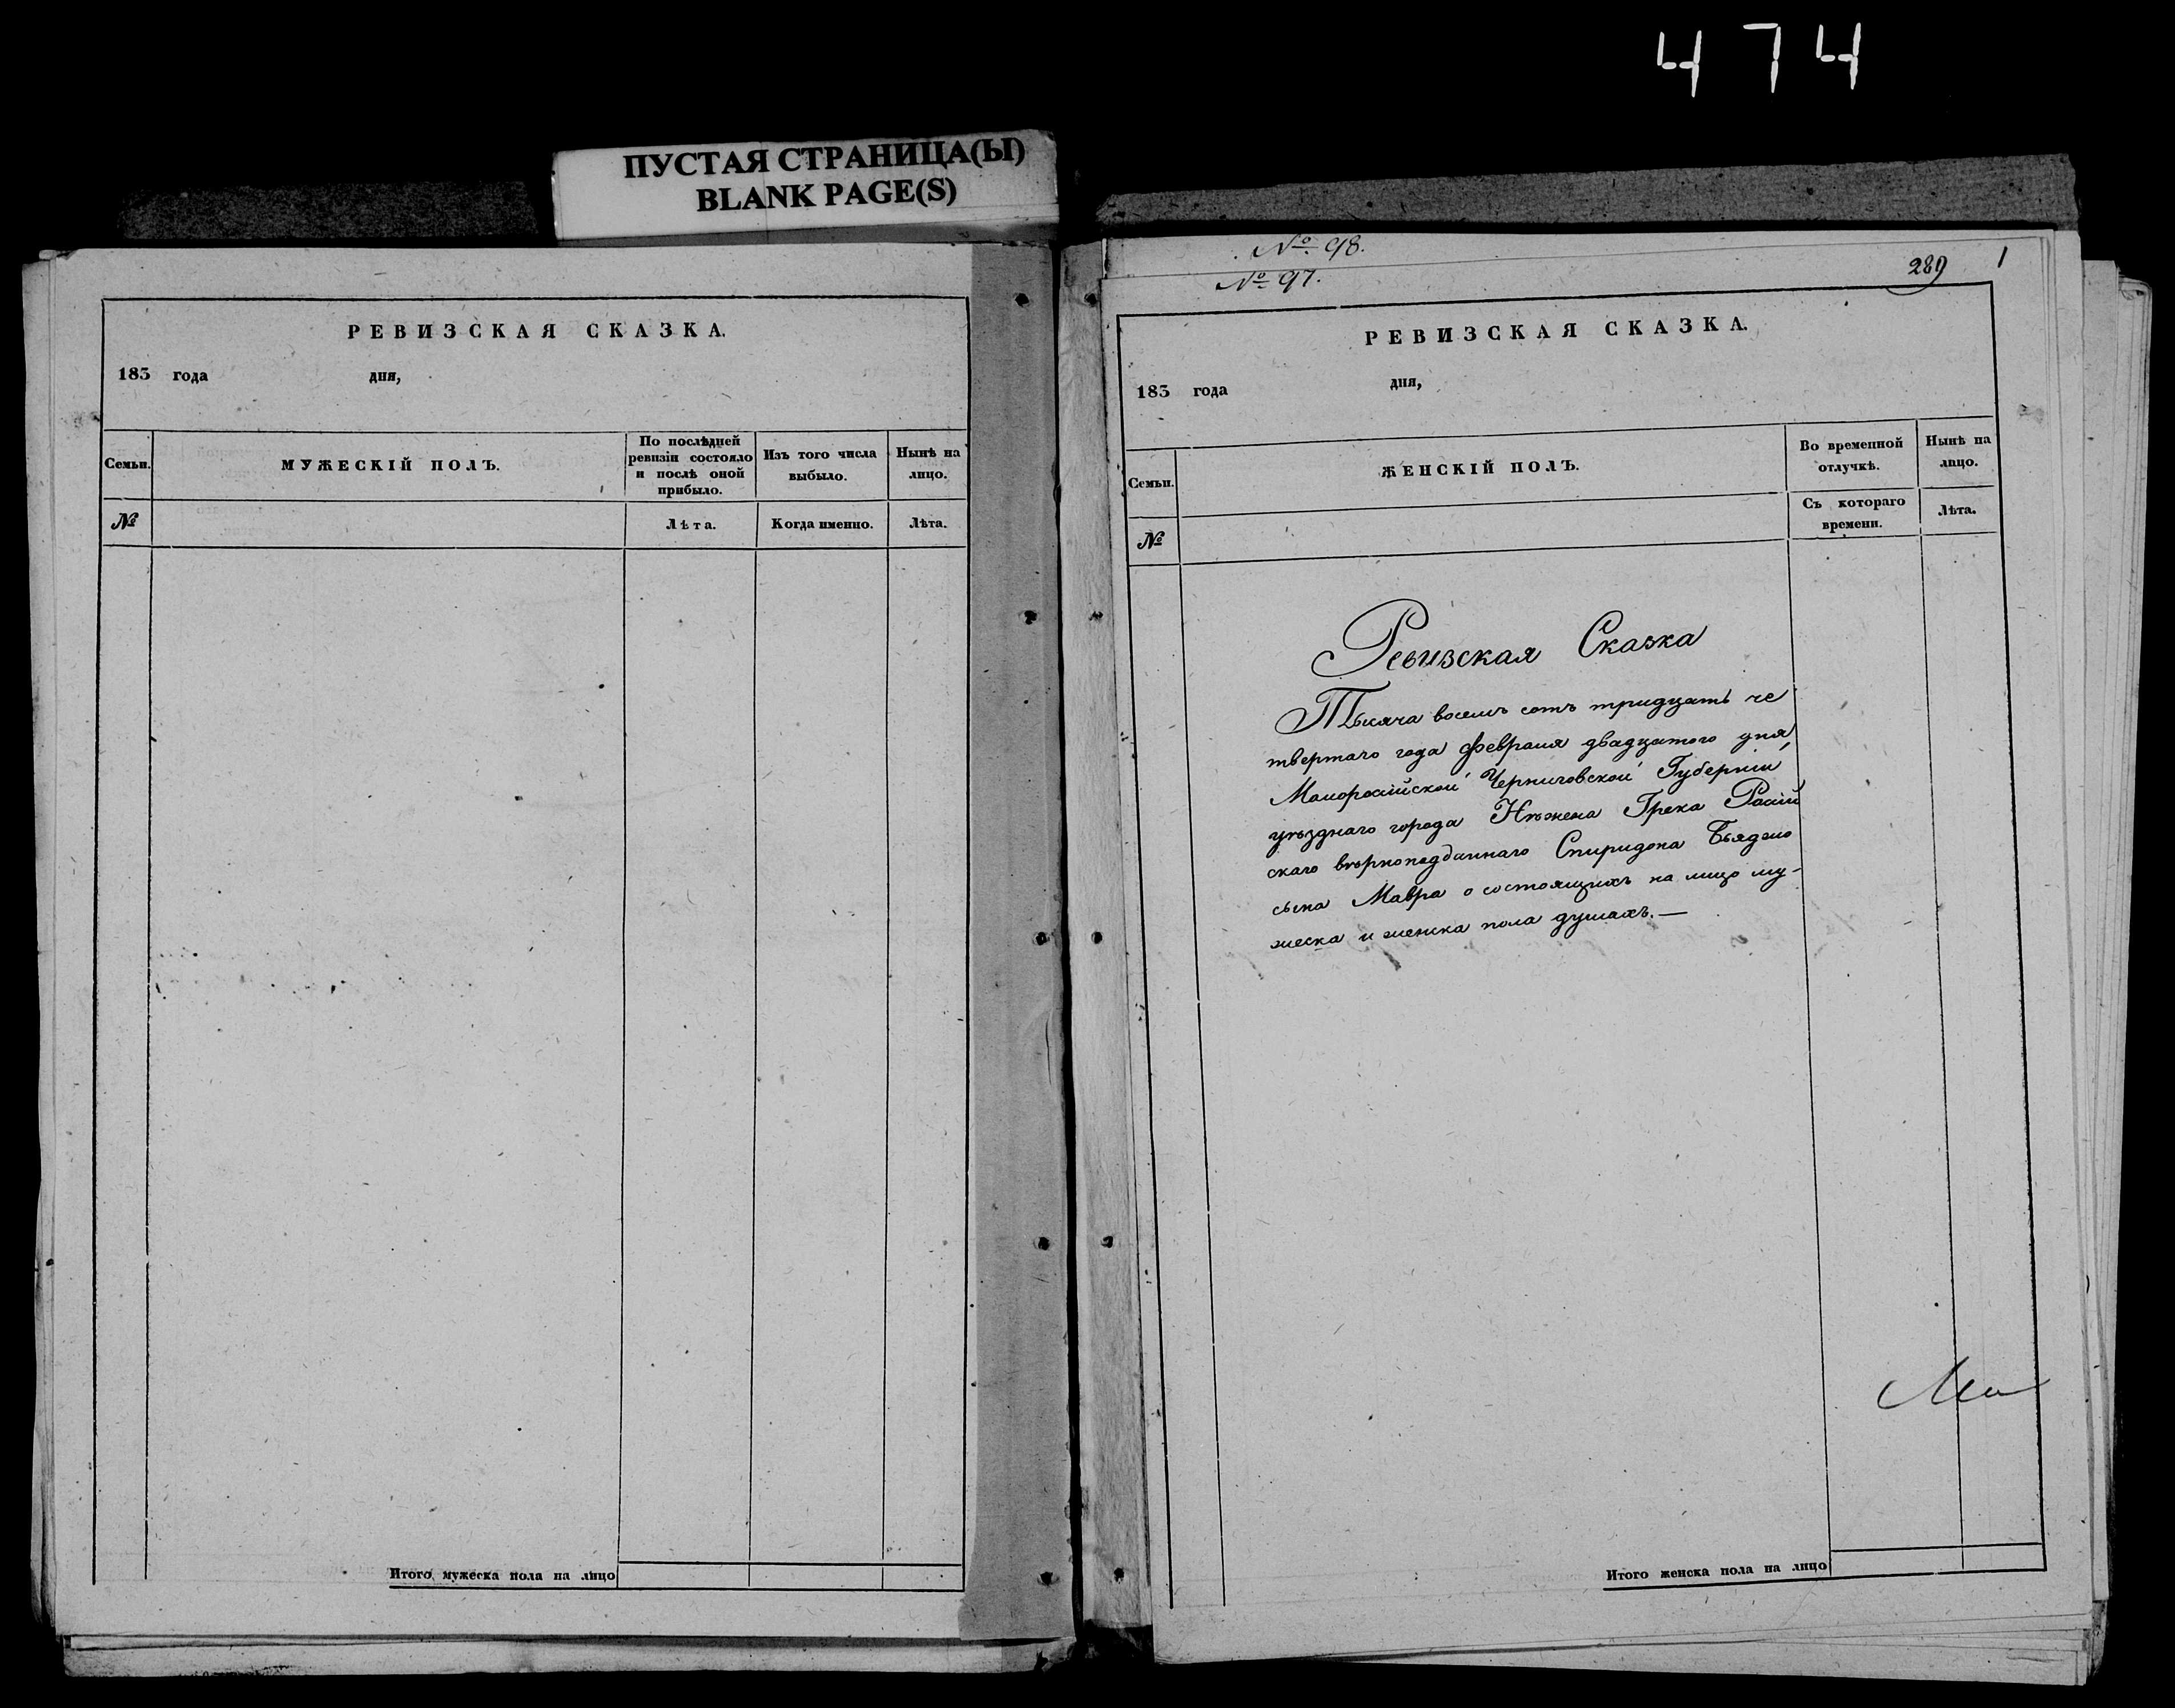 474
ПУСТАЯ СТРАНИЦА(Ы)
BLANK PAGE(S)
РЕВИЗСКАЯ СКАЗКА.
183 года дня,
Семьи.
МУЖЕСКІЙ ПОЛЪ.
По послѣдней
ревизіи состояло
и послѣ оной
прибыло.
Изъ того числа
выбыло.
Нынѣ на
лицо.
№
Лѣта.
Когда именно.
Лѣта.
Итого мужеска пола на лицо
№ 98.
№ 97.
289
1
РЕВИЗСКАЯ СКАЗКА.
183 года дня,
Семьи.
ЖЕНСКІЙ ПОЛЪ.
Во временной
отлучкѣ.
Нынѣ на
лицо.
№
Съ котораго
времени.
Лѣта.
Ревизская Сказка
Тысяча восемь сотъ тридцать че
твертаго года февраля двадцатого дня,
Малоросійской Черниговской Губерніи
уѣзднаго города Нѣжена Грека Росій
скаго вѣрноподданнаго Спиридона
сына Мавра о состоящихъ на лицо му-
жеска и женска пола душахъ.—
Итого женска пола на лицо